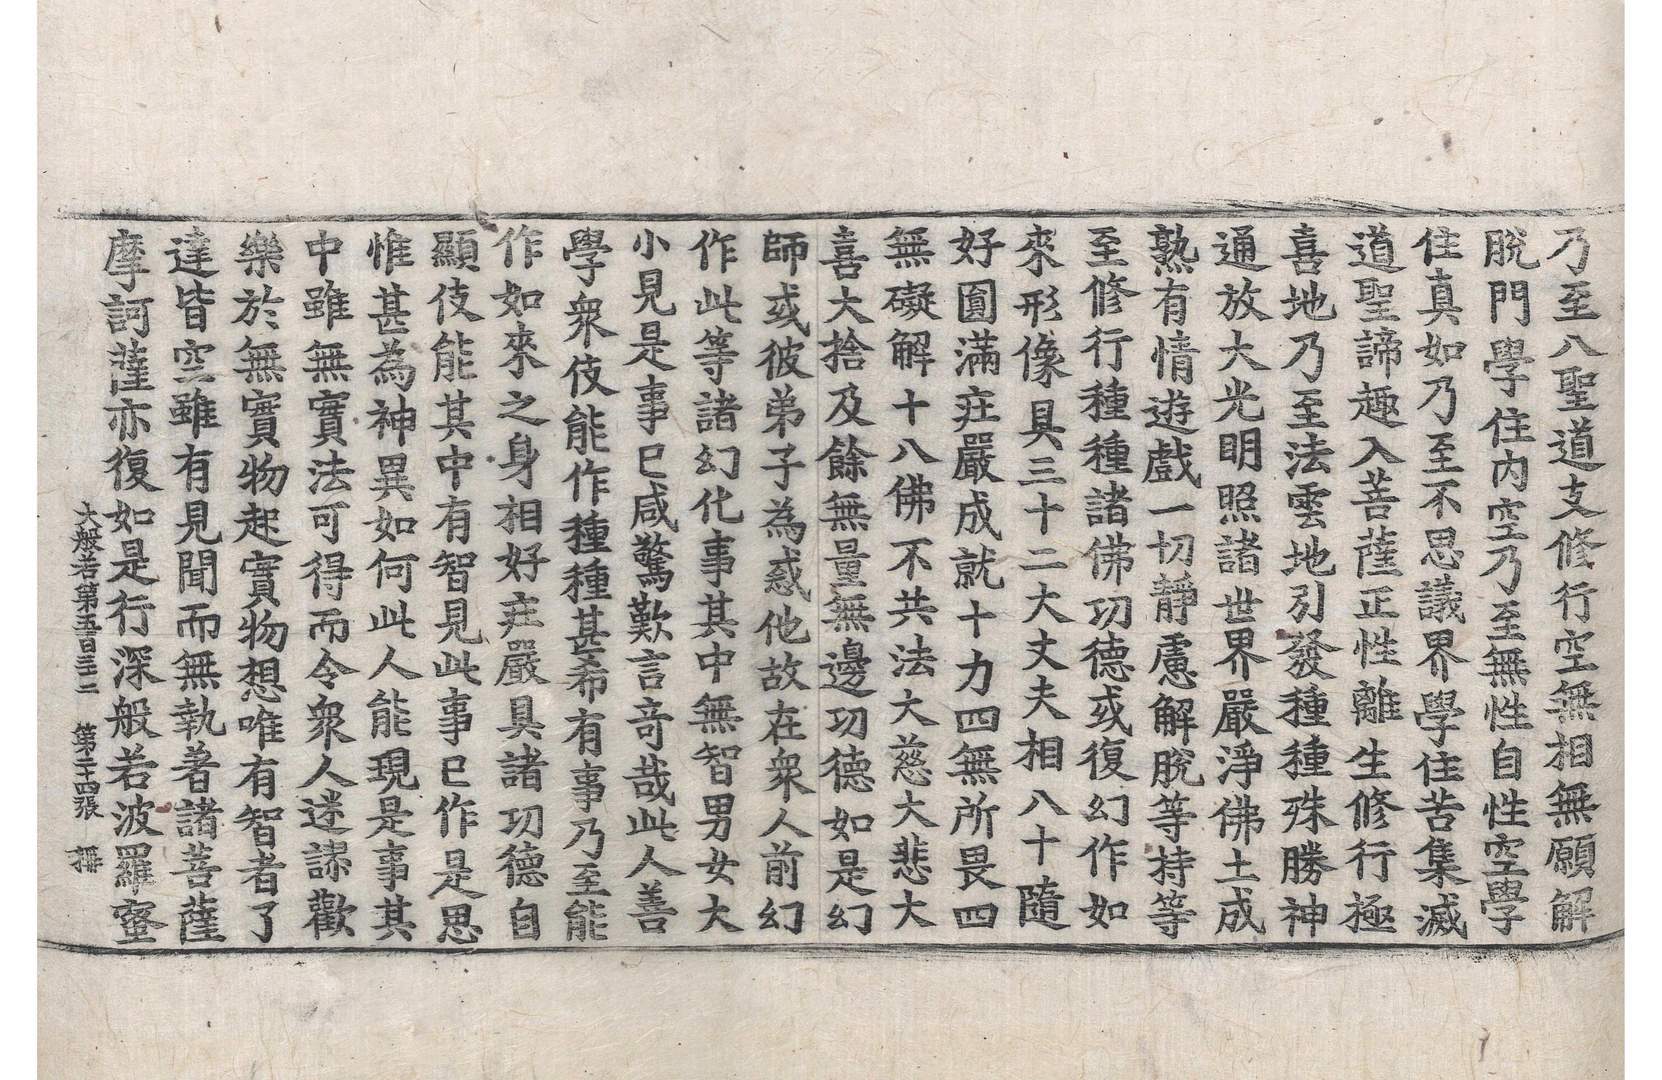 乃至八聖道支修行空無相無願解
脫門學住內空乃至無性自性空學
住真如乃至不思議界學住苦集滅
道聖諦趣入菩薩正性離生修行極
喜地乃至法雲地引發種種殊勝神
通放大光明照諸世界嚴淨佛土成
熟有情遊戲一切靜慮解脫等持等
至修行種種諸佛功德或復幻作如
來形像具三十二大丈夫相八十隨
好圓滿疘嚴成就十力四無所畏四
無礙解十八佛不共法大慈大悲大
喜大捨及餘無量無邊功德如是幻
師或彼弟子為惑他故在衆人前幻
作此等諸幻化事其中無智男女大
小見是事已咸驚歎言奇哉此人善
學衆伎能作種種甚希有事乃至能
作如來之身相好疘嚴具諸功德自
顯伎能其中有智見此事已作是思
惟甚為神異如何此人能現是事其
中雖無實法可得而令衆人迷謬歡
樂於無實物起實物想唯有智者了
達皆空雖有見聞而無執著諸菩薩
摩訶薩亦復如是行深般若波羅蜜
大般若第五百三十二　第二十四張